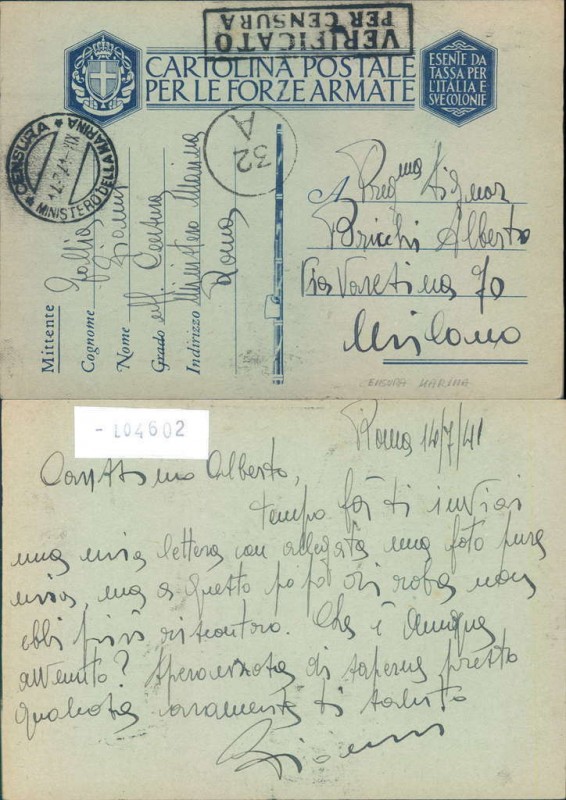 VERIFICATO
PER CENSURA
CARTOLINA POSTALE
PER LE FORZE ARMATE
ESENTE DA
TASSA PER
L'ITALIA E
SVE COLONIE
CENSURA
MINISTERO DELLA MARINA
32
A
Mittente
Cognome
Nome Gianni
Grado uff. Censura
Indirizzo Ministero Marina
Roma
A Preg.mo Signor
Bricchi Alberto
Via Varesina 70
Milano
CENSURA MARINA
- L04602
Roma 14/7/41
Carissimo Alberto,
tempo fa ti inviai
una mia lettera con allegata una foto pure
mia, ma a questo po' po' di roba non
ebbi più riscontro. Che è dunque
avvenuto? Speranzoso di saperne presto
qualcosa caramente ti saluto
Gianni